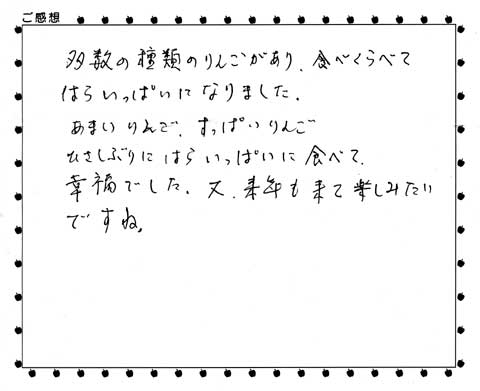 ご感想
多数の種類のりんごがあり、食べくらべて
はらいっぱいになりました。
あまいりんご、すっぱいりんご
ひさしぶりにはらいっぱいに食べて、
幸福でした。又、来年も来て楽しみたい
ですね。